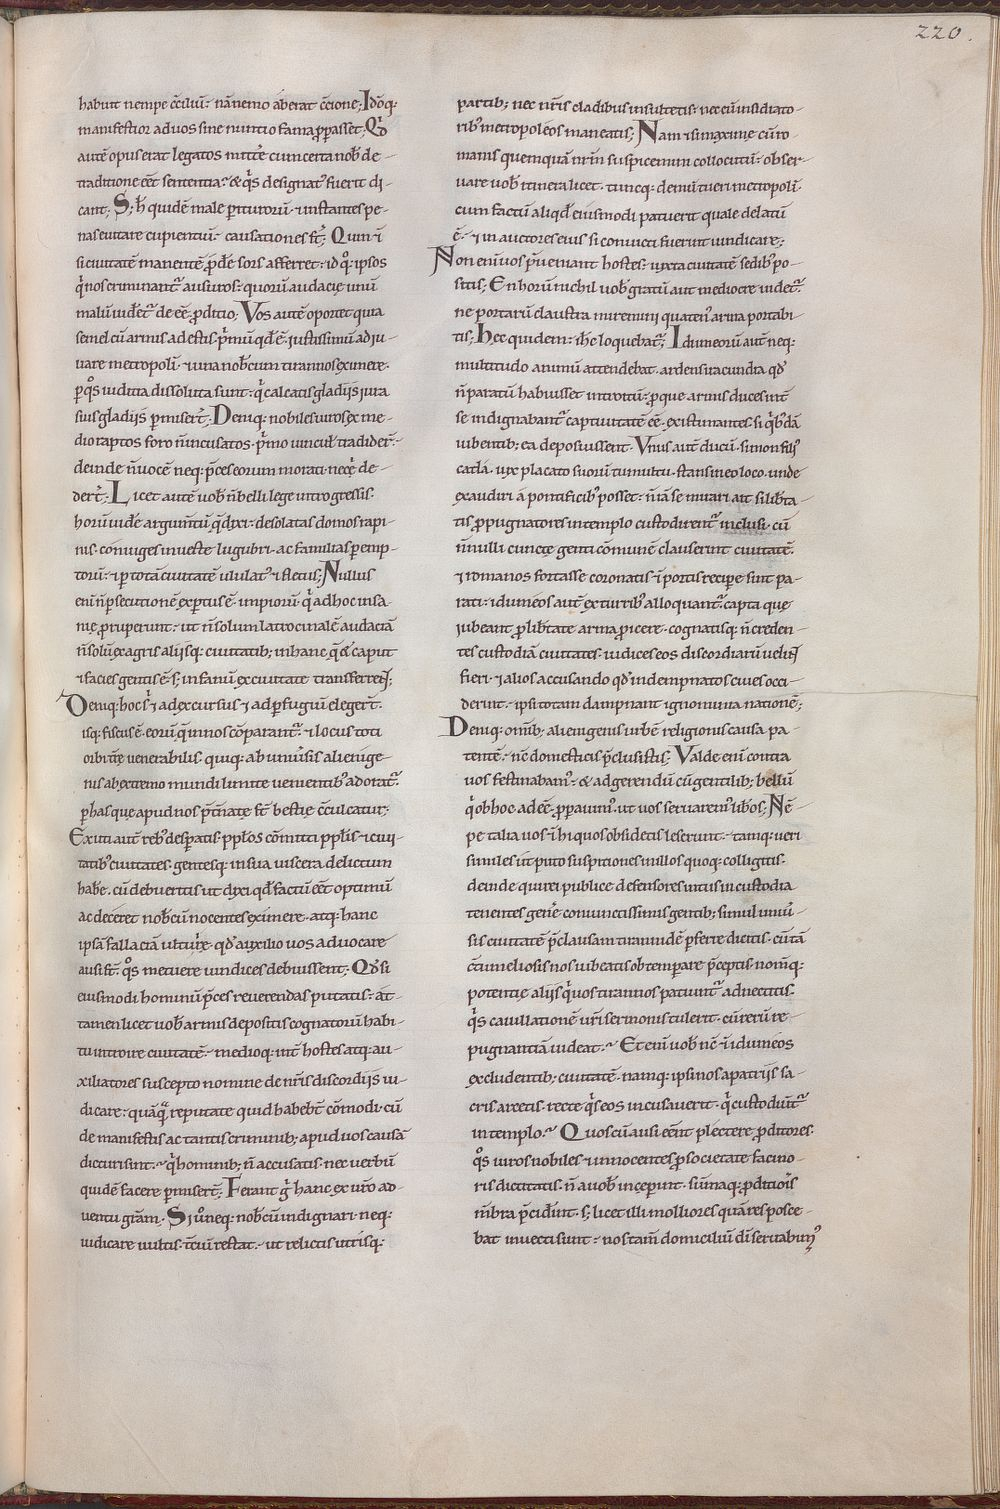 220.
habuit nempe c̄ciliū· nā nemo aberat c̄cione; Idōq;
manifestior ad uos sine nuntio fama p̱passet; Qđ
autē opus erat legatos mitt̄e cum certa nob̄ de-
traditione eēt sententia? & q̊s designat᾽ fuerit di-
cant; S; h̄ quidē male p̱iturorū· & instantes pe-
nas euitare cupientiū· causationes s̄t; Qum ī
si ciuitatē manentē p̱dĕ sors afferret· id q̊; ipsos
q̇ nos criminant᷑ ausuros· quorū audacię unū
malū uidet᷑ de eē p̱ditio; Vos autē oportet quia
semel cū armis adestis ṗmū qđ ē iustissimū adiu-
uare metropolī· & una nob̄cum tirannos eximere·
p̱ q̊s iuditia dissoluta sunt· q̇ calcatis gladiis iura
suis gladiis p̱miser̄t; Deniq; nobiles uiros ex me-
dio raptos foro n̄ incusatos· ṗmo uincul᷑ tradider̄·
deinde n̄ uocē neq; p̄ces eorum morati· necę̇ de-
der̄t; Licet autē uob̄ n̄ belli lege introgressis·
horū uidĕ argum̄tū q̄ dixi· desolatas domos rapi-
nis· coniuges in ueste lugubri· ac familias p̱emp-
torū· & p̱ totam ciuitatē ululat᾽ & fletus; Nullus
enī n̄ p̱secutionē exp̱tus ē· impiorū· q̇ ad hoc insa-
nię p̱ruperunt· ut n̄ solum latrocinalē audaciā
n̄ solū ex agris aliisq; ciuitatib; in hanc q̄ & caput
& facies gentis ē· s; in fanū ex ciuitate transferrent;
Deniq; hoc s᷑ & ad excursus & ad p̱fugiū eleger̄t·
isq; fiscus ē· eorū q̄ in nos cōparant᷑· & locus toti
orbi t̄rę uenerabilis· quiq; ab uniūsis alienige-
nis ab extremo mundi limite uenientib᾽ adorat᷑·
p̱ has quę apud nos p̱cn̄atę s̄t bestię c̄culcatur;
Exuti autē reb᾽ desp̱atis· pplōs cōmitti pplīs· & ciui-
tatib᾽ ciuitates· gentesq; in sua uiscera delictum
hab̄e· cū debueritis ut dixi qđ factū eēt optimū
ac deceret nob̄cū nocentes eximere· atq; hanc
ipsā fallaciā ultuīre· qđ auxilio uos aduocare
ausi s̄t· q̊s metuere uindices debuissent; Qđ si
eiusmodi hominū p̄ces reuerendas putatis· at-
tamen licet uob̄ armis depositis cognatorū habi-
tu introire ciuitatē· medioq; int̄ hostes atq; au-
xiliatores suscepto nomine de nr̄is discordiis iu-
dicare· quāq̄ reputate quid habeb̄t cōmodi· cū
de manifestis ac tantis criminib; apud uos causā
dicturi sint· q̇ hominib; n̄ accusatis· nec uerbū
quidē facere p̱miser̄t; Ferant g̊ hanc ex ur̄o ad-
uentu grām· Si ūneq; nob̄cū indignari· neq;
iudicare uultis· t̄ciū restat· ut relictis utrisq;
partib; nec nr̄is cladibus insultetis· nec cū insidiato-
rib᾽ metropoleos maneatis; Nam & si maxime cū ro-
manis quemquā nr̄m suspicemini collocutū· obser-
uare uob̄ itinera licet· tuncq; demū tueri metropolī·
cum factū aliqđ eiusmodi patuerit quale delatū
ē· & in auctores eius si conuicti fuerint uindicare;
Non enī uos p̱ueniant hostes· iuxta ciuitatē sedib᾽ po-
sitis; En horū nichil uob̄ gratū aut mediocre uidet᷑·
ne portarū claustra miremini quaten᾽ arma portabi-
tis; Hęc quidem· ih̄c loquebat᷑; Idumeorū aut̄ neq;
multitudo animū attendebat· ardens iracundia qđ
n̄ paratū habuisset introitū· p̱que armis duces int̄
se indignabant᷑ captiuitatē eē· existimantes· si q̇b᾽dā
iubentib; ea deposuissent· Vnus aut̄ ducū· simon fili᾽
catlā· uix placato suorū tumultu· stans in eo loco· unde
exaudiri ā pontificib᾽ posset· n̄ iā se mirari ait si lib̄ta-
tis p̱pugnatores in templo custodirent᷑ inclusi· cū
n̄nulli cunctę genti cōmunē clauserint ciuitatē·
& romanos fortasse coronatis ī portis recipere sint pa-
rati· idumeos autē ex turrib᾽ alloquant᷑· capta quę
iubeant p̱ lib̄tate arma p̱icere· cognatisq; n̄ creden-
tes custodiā ciuitates· iudices eos discordiarū uelint
fieri· & alios accusando qđ indempnatos ciues occi-
derint· ipsi totam dampnant ignominia nationē;
Deniq; omīb; alienigenis urbē religionis causa pa-
tentē· nē domesticis p̄clusistis; Valde enī contra
uos festinabam᾽· & ad gerendū cū gentilib; bellū
q̇ ob hoc adeē p̱pauim᾽· ut uos seruarem᾽ lib̄os; Nē-
pe talia uos & hi quos obsidetis leserunt· tamq; ueri
similes ut puto suspitiones in illos quoq; colligitis·
deinde qui rei publicę defensores intus in custodia
tenentes gen̄e coniunctissimis gentib; simul uniū-
sis ciuitatē p̄clausam tirannidē p̱ferre dicitis· cū tā
c̄tumeliosis nos iubeatis obtemperare p̄ceptis· nomq;
potentię aliis q̇uos tirannos patiunt᷑ adnectitis·
q̊s cauillationē ur̄i sermonis tulerit· cū rerū re-
pugnantiā uideat? Et enī uob̄ nc̄ & idumeos
excludentib; ciuitatē· namq; ipsi nos a patriis sa-
cris arcetis· recte q̊s eos incusauerit· q̇ custodiūt᷑
in templo? Quos cū ausi eēnt plectere p̱ditores·
q̊s uiros nobiles & innocentes p̱ societate facino-
ris dictitatis· n̄ a uob̄ inceperunt· sūmaq; p̱ditiōis
mēbra p̄ciđunt· s; licet illi molliores quā res posce-
bat inuecti sunt· nos tam̄ domiciliū dī seruabim᾽